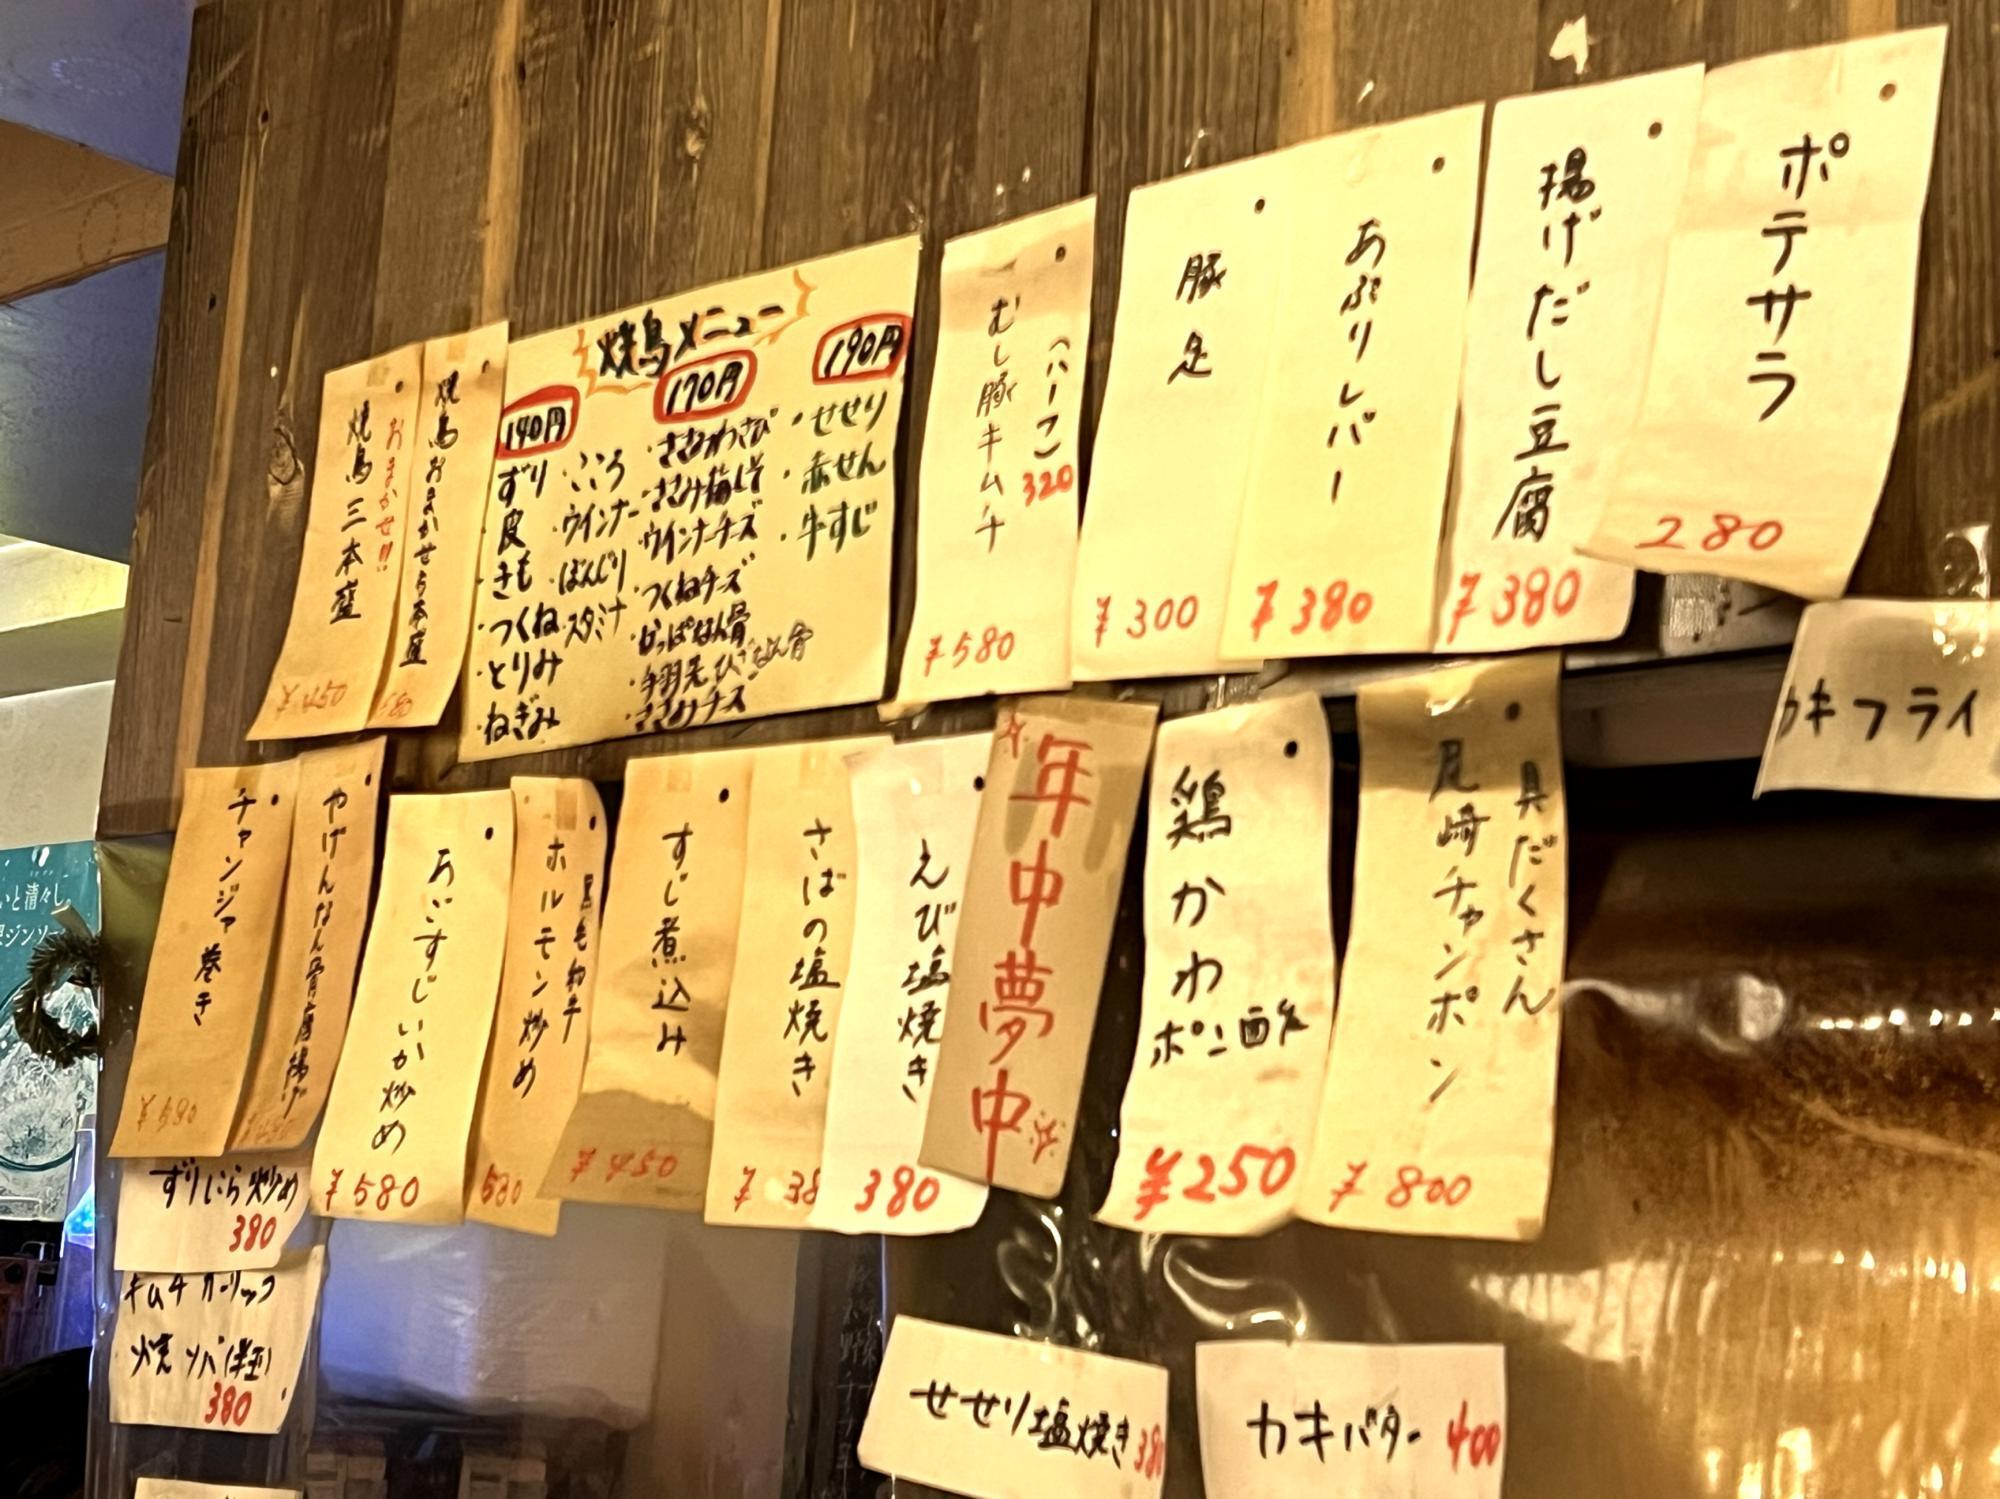 ポテサラ
280
揚げだし豆腐
¥380
あぶりレバー
¥380
豚足
¥300
(ハーフ)
320
むし豚キムチ
¥580
焼鳥メニュー
140円
ずり
・皮
・きも
・つくね
・とりみ
・ねぎみ
・こころ
・ウインナー
・ぼんじり
・スタミナ
170円
・ささみわさび
・ささみ梅しそ
・ウインナーチーズ
・つくねチーズ
・かっぱなん骨
・手羽先
・ひざなん骨
・ささみチーズ
190円
・せせり
・赤せん
・牛すじ
焼鳥おまかせ5本盛
580
おまかせ!!
焼鳥三本盛
¥450
カキフライ
具だくさん
尼崎チャンポン
¥800
鶏かわ
ポン酢
¥250
年中夢中
えび塩焼き
380
さばの塩焼き
¥38
すじ煮込み
¥450
黒毛和牛
ホルモン炒め
580
あごすじいか炒め
¥580
やげんなん骨唐揚げ
¥480
チャンジャ巻き
¥580
ずりにら炒め
380
キムチガーリック
焼ソバ(半玉)
380
せせり塩焼き
380
カキバター 400
いと清々し。